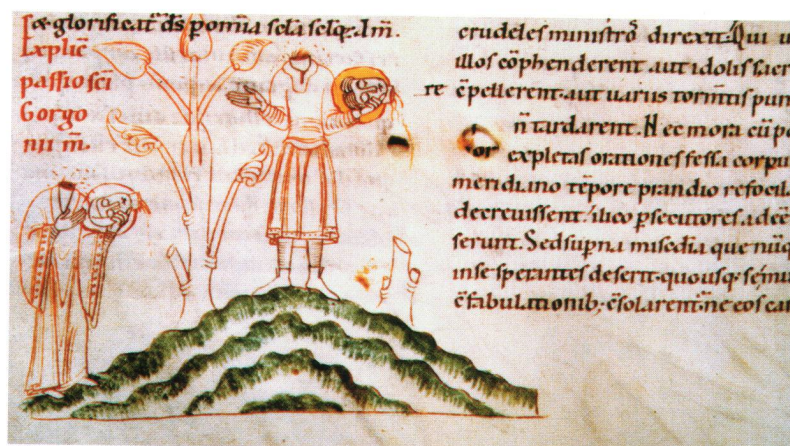 glorificat d̄s p om̄ia scła scłoȝ. Am̄.
Explic̄
passio sc̄i
Gorgo
nii m̄.
crudeles ministro᷒ direxit. Qui u
illos cōphenderent aut idolis sacr
re c̄pellerent. aut uariis torm̄tis pun
n̄ tardarent. H ec mora cū po
expletas orationes fessa corpu
meridiano tēpore prandio refocil
decreuissent. ilico p̱secutores adcē
serunt. Sed sup̱na misc̄dia que nūq̄
in se sperantes deserit. quousq;
c̄fabulationib; c̄solarent̄. ne eos